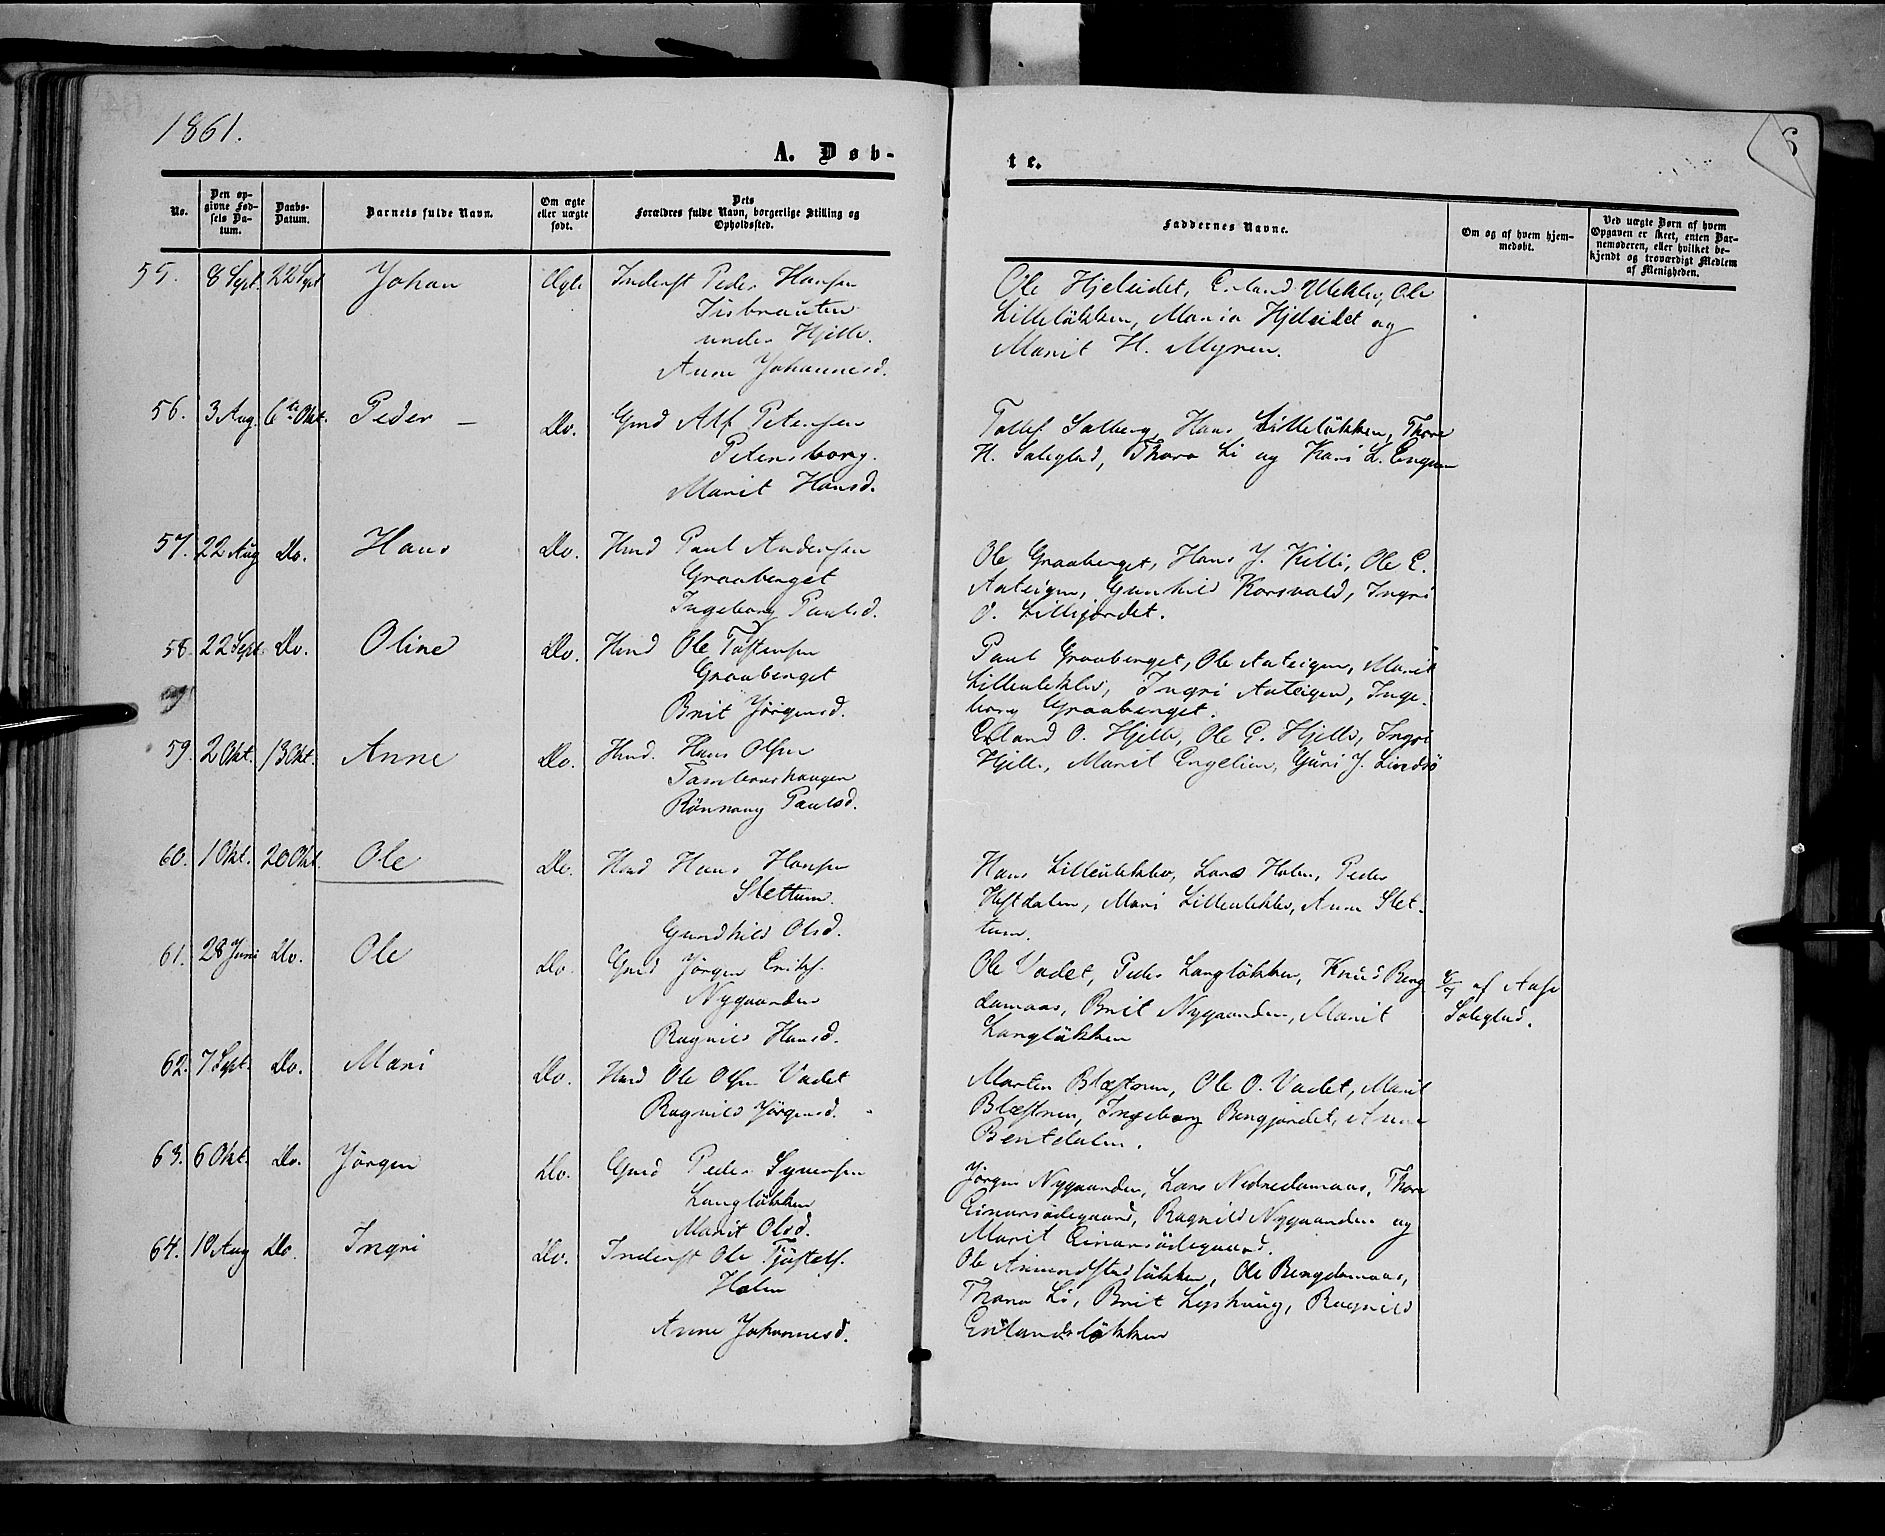 1861.
A. Døb-
te.
6
No.
Den op-
givne Fød-
sels Da-
tum.
Daabs-
Datum.
Barnets fulde Navn.
Om ægte
eller uægte
født.
Dets
Forældres fulde Navn, borgerlige Stilling og
Opholdssted.
Faddernes Navne.
Om og af hvem hjem-
medøbt.
Ved uægte Børn af hvem
Opgaven er skeet, enten Bar-
nemoderen, eller hvilket be-
kjendt og troværdigt Medlem
af Menigheden.
55. 8 Sept. 22 Sept Johan Ægte Inderst Peder Hansen
under Hjelle.
Anne Johannesd.
Ole Hjeleidet, Erland Uleklev, Ole
Lilleløkken, Maria Hjeleidet og
Marit H. Myren.
56. 3 Aug. 6te Okt. Peder – Do. Gmd Alf Petersen
Petersborg.
Marit Hansd.
Tollef Solberg, Hans Lilleløkken, Thore
H. Soleglad, Thora Li og Kari L. Engum
57. 22 Aug Do. Hans Do. Hmd Paul Andersen
Graaberget
Ingeborg Paulsd.
Ole Graaberget, Hans J. Killi, Ole E.
Aateigen, Gunhild Korsvold, Ingri
O. Lillejordet.
58. 22 Sept. Do. Oline Do. Hmd Ole Tostensen
Graaberget
Brit Jörgensd.
Paul Graaberget, Ole Aateigen, Marit
Lilleuleklev, Ingri Aateigen, Inge-
borg Graaberget.
59. 2 Okt. 13 Okt. Anne Do. Hmd. Hans Olsen
Rönnaug Paulsd.
Erland O. Hjelle, Ole E. Hjelle, Ingri
Hjelle, Marit Engelien, Guri J. Lindsö
60. 1 Okt. 20 Okt. Ole Do. Hmd Hans Hansen
Slettum.
Gundhild Olsd.
Hans Lilleuleklev, Lars Holen, Peder
Heftdalen, Mari Lilleuleklev, Anne Slet-
tum.
61. 28 Juni Do. Ole Do. Gmd Jörgen Eriks.
Nygaarden
Ragnild Hansd.
Ole Vadet, Peder Langløkken, Knud Beng-
damaas, Brit Nygaarden, Marit
Langløkken
6/7 af Aase
Soleglad.
62. 7 Sept. Do. Mari Do. Hmd Ole Olsen Vadet
Ragnild Jörgensd.
Morten Blæstren, Ole O. Vadet, Marit
Blæstren, Ingeborg Bergjordet, Anne
Bentdalen.
63. 6 Okt. Do. Jörgen Do. Gmd Peder Syversen
Langløkken
Marit Olsd.
Jörgen Nygaarden, Lars Nedredamaas, Thore
Einarsødegaard, Ragnild Nygaarden og
Marit Einarsødegaard.
64. 10 Aug Do. Ingri Do. Inderst Ole Tjøstels.
Holen
Anne Johannesd.
Ole Amundstadløkken, Ole Bengdamaas,
Thora Li, Brit Lyshaug, Ragnild
Erlandsløkken